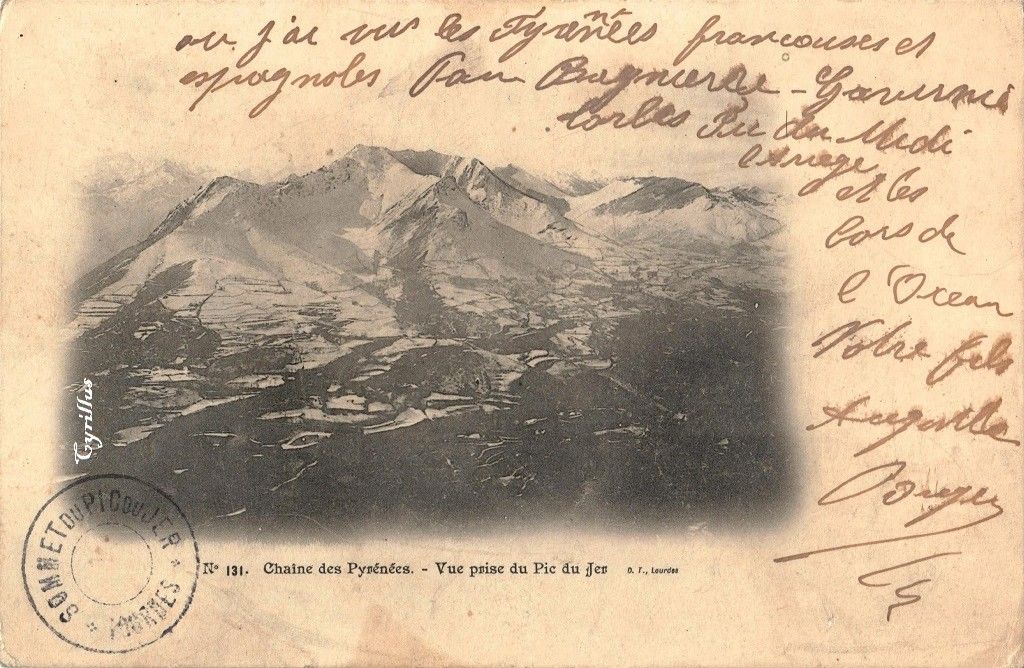 ou j'ai vu les Pyrénnées francouses et
espagnoles Pau Bagnerre - Gavarnie
Torbes Pic du Medi
l'Ariege
et les
bors de
l'Ocean
Votre fils
Cyrillus
SOMMET DU PIC DU JER * LOURDES *
Nº 131. Chaine des Pyrénées. - Vue prise du Pic du Jer D. T., Lourdes